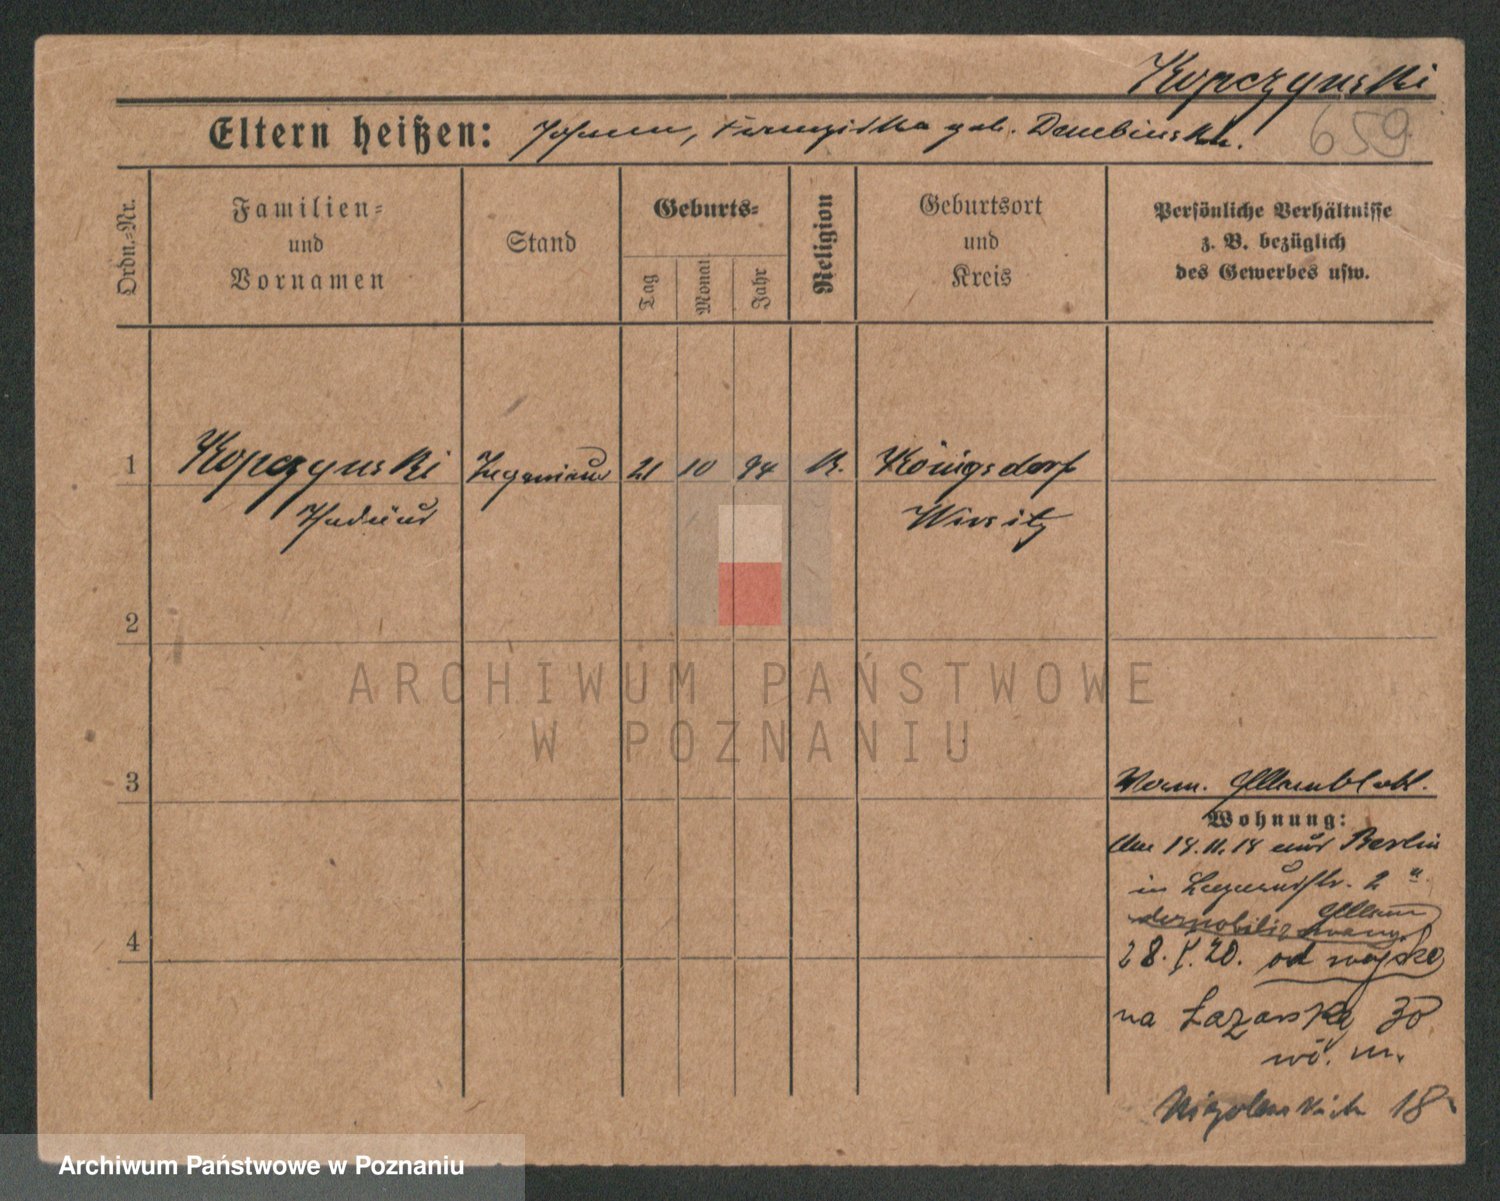 Kopczynski
Eltern heißen: Johann, Franziska geb. Dembinska.
659
Ordn.-Nr.
Familien-
und
Vornamen
Stand
Geburts-
Tag
Monat
Jahr
Religion
Geburtsort
und
Kreis
Persönliche Verhältnisse
z. B. bezüglich
des Gewerbes usw.
1
Kopczynski
Ingenieur
21
10
94
K.
Königsdorf
Wirsitz
2
ARCHIWUM PAŃSTWOWE
W POZNANIU
3
Wohnung:
18.11.18 aus Berlin
in 2
4
28. 20. od wojska
na Łazarską 30
18
Archiwum Państwowe w Poznaniu